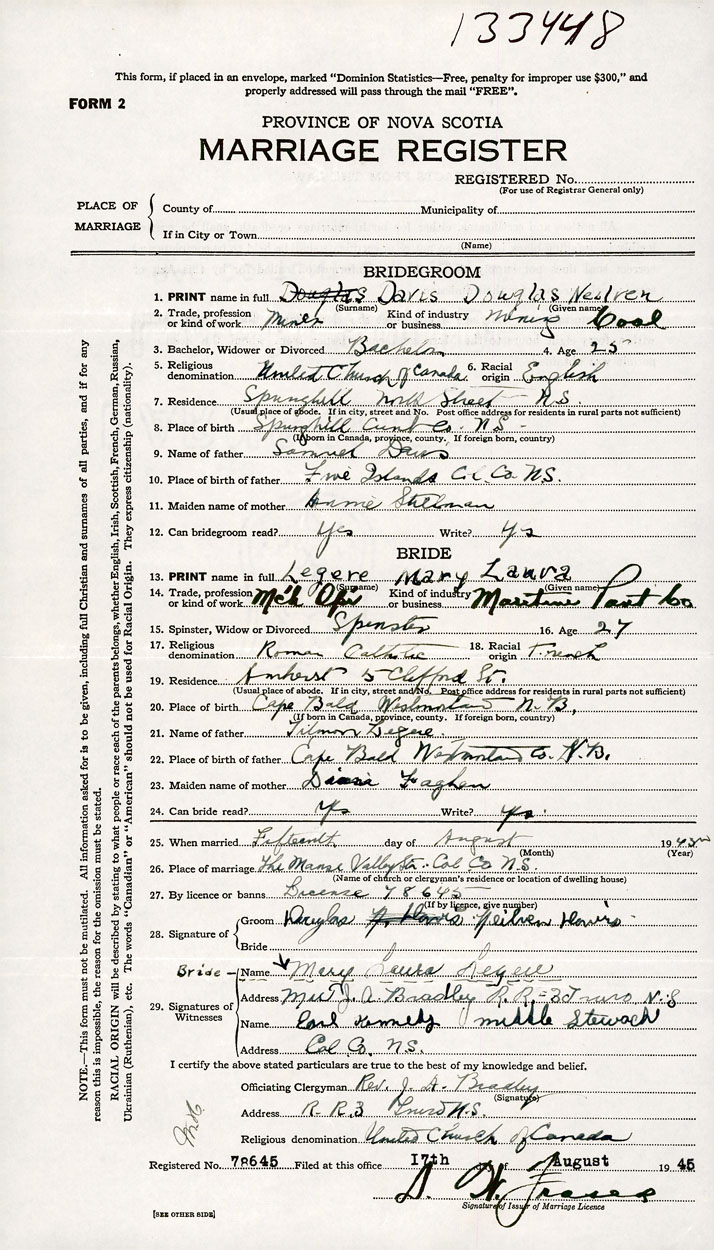 133448
This form, if placed in an envelope, marked "Dominion Statistics—Free, penalty for improper use $300," and
properly addressed will pass through the mail "FREE".
FORM 2
PROVINCE OF NOVA SCOTIA
MARRIAGE REGISTER
REGISTERED No.
(For use of Registrar General only)
PLACE OF MARRIAGE
County of Municipality of
If in City or Town
(Name)
BRIDEGROOM
1. PRINT name in full Douglas Davis Douglas Neilven
(Surname) (Given name)
2. Trade, profession or kind of work Miner Kind of industry or business Mining Coal
3. Bachelor, Widower or Divorced Bachelor 4. Age 25
5. Religious denomination United Church of Canada 6. Racial origin English
7. Residence Springhill North Street N.S.
(Usual place of abode. If in city, street and No. Post office address for residents in rural parts not sufficient)
8. Place of birth Springhill Cumb Co. N.S.
(If born in Canada, province, county. If foreign born, country)
9. Name of father Samuel Davis
10. Place of birth of father Five Islands Col. Co. N.S.
11. Maiden name of mother Annie
12. Can bridegroom read? Yes Write? Yes
BRIDE
13. PRINT name in full Legere Mary Laura
(Surname) (Given name)
14. Trade, profession or kind of work Kind of industry or business Maritime Co
15. Spinster, Widow or Divorced Spinster 16. Age 27
17. Religious denomination Roman Catholic 18. Racial origin French
19. Residence Amherst 5 Clifford St.
(Usual place of abode. If in city, street and No. Post office address for residents in rural parts not sufficient)
20. Place of birth Cape Bald Westmorland N.B.
(If born in Canada, province, county. If foreign born, country)
21. Name of father Tilmon Legere
22. Place of birth of father Cape Bald Westmorland Co. N.B.
23. Maiden name of mother
24. Can bride read? Yes Write? Yes
25. When married Fifteenth day of August 1945
(Month) (Year)
26. Place of marriage The Manse Valley Stn. Col Co N.S.
(Name of church or clergyman's residence or location of dwelling house)
27. By licence or banns License 78645
(If by licence, give number)
28. Signature of
Groom Douglas Neilven Davis
Bride
Bride - Name Mary Laura Legere
29. Signatures of Witnesses
Address Mrs. J. A. Bradley R.R. 3 Truro N.S
Name Earl Kennedy Middle Stewiack
Address Col. Co. N.S.
I certify the above stated particulars are true to the best of my knowledge and belief.
Officiating Clergyman Rev. J. A. Bradley
(Signature)
Address R.R.3 Truro N.S.
Religious denomination United Church of Canada
Registered No. 78645 Filed at this office 17th day of August 1945
D. W. Fraser
Signature of Issuer of Marriage Licence
[SEE OTHER SIDE]
NOTE.—This form must not be mutilated. All information asked for is to be given, including full Christian and surnames of all parties, and if for any
reason this is impossible, the reason for the omission must be stated.
RACIAL ORIGIN will be described by stating to what people or race each of the parents belongs, whether English, Irish, Scottish, French, German, Russian,
Ukrainian (Ruthenian), etc. The words "Canadian" or "American" should not be used for Racial Origin. They express citizenship (nationality).